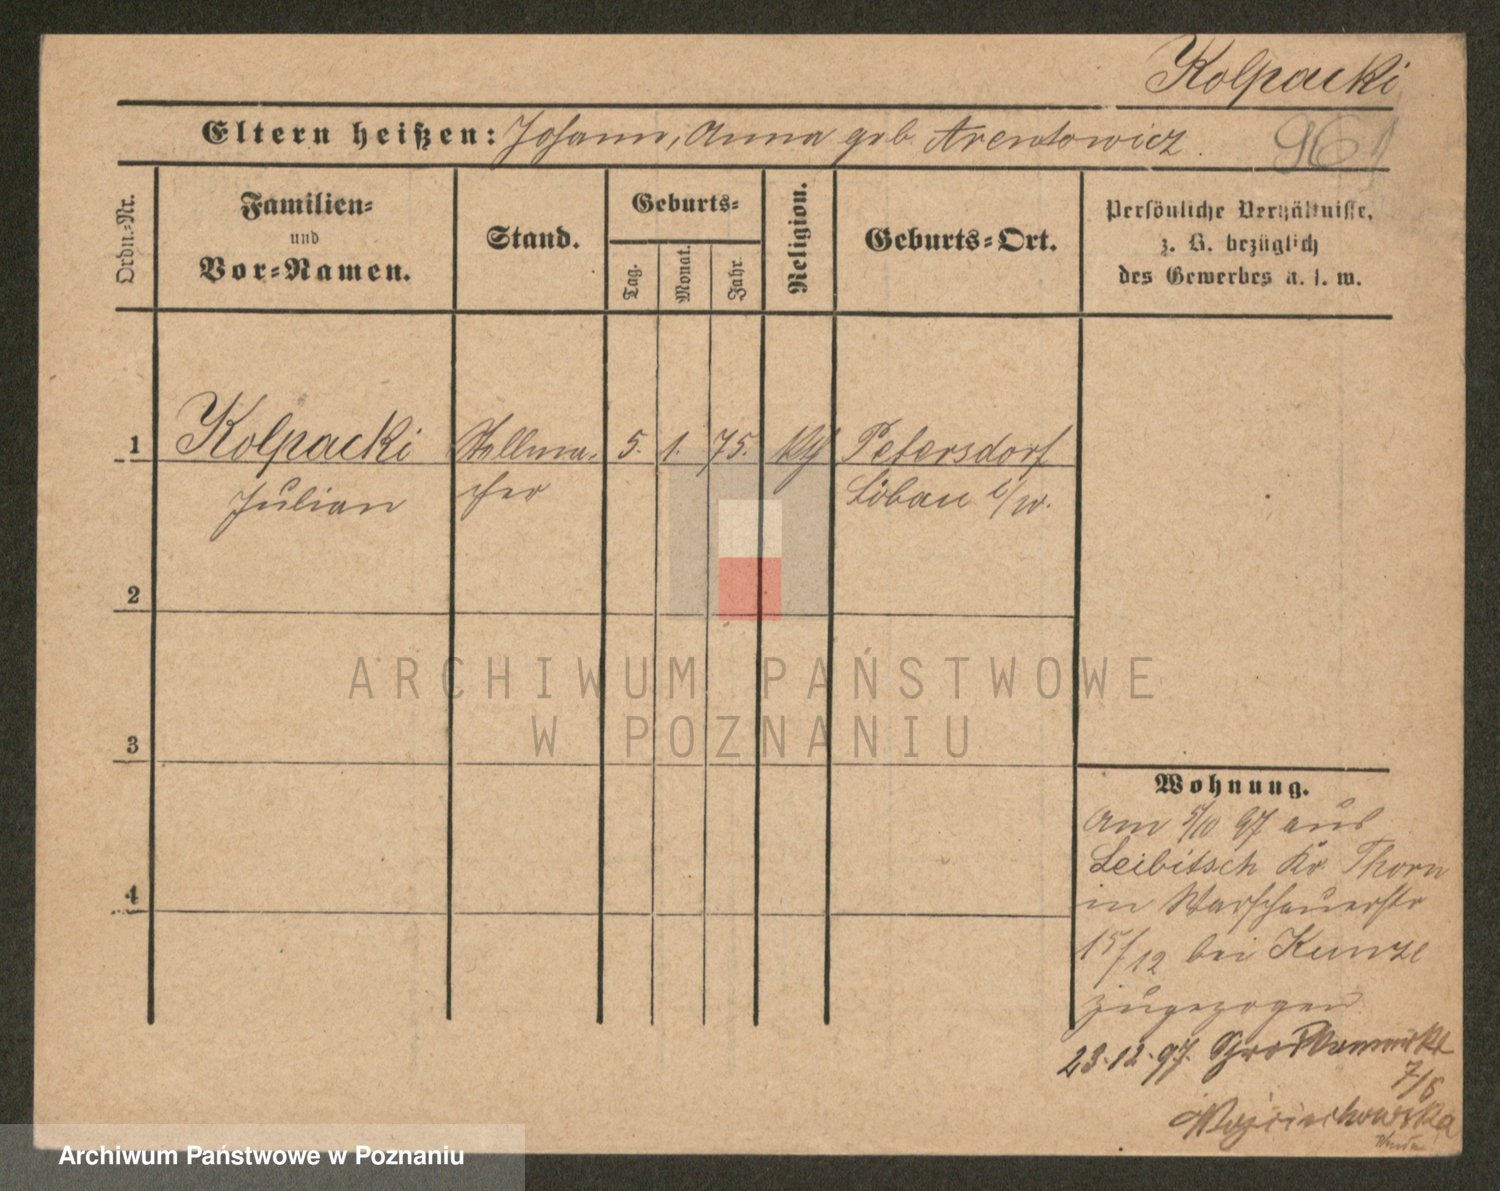 Kolpacki
Eltern heißen: Johann, Anna geb. Arentowicz
961
Ordn.-Nr.
Familien-
und
Vor-Namen.
Stand.
Geburts-
Tag.
Monat.
Jahr.
Religion.
Geburts-Ort.
Persönliche Verhältnisse,
z. B. bezüglich
des Gewerbes u. s. w.
1 Kolpacki Stellma- 5. 1. 75. Petersdorf
Julian cher Löbau /w.
2
3
4
Wohnung.
Am 5/10 97 aus
Leibitsch Kr Thorn
in Warschauerstr
15/12 bei Kunze
zugezogen
23.12.97.
7/8
Wojciechowska
ARCHIWUM PAŃSTWOWE
W POZNANIU
Archiwum Państwowe w Poznaniu